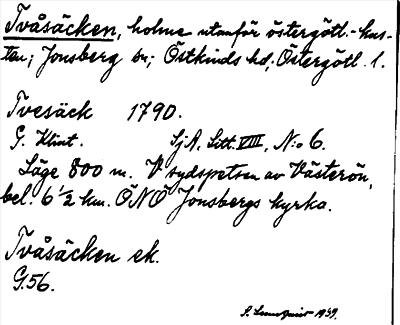 Tvåsäcken, holme utanför östergötl.-kus-
ten; Jonsberg sn; Östkinds hd; Östergötl. l.
Tvesäck 1790.
G. Klint. SjA, Litt. VIII, N:o 6.
Läge 800 m. V sydspetsen av Västerön,
bel. 6 1/2 km. ÖNÖ Jonsbergs kyrka.
Tvåsäcken ek.
G.56.
1939.